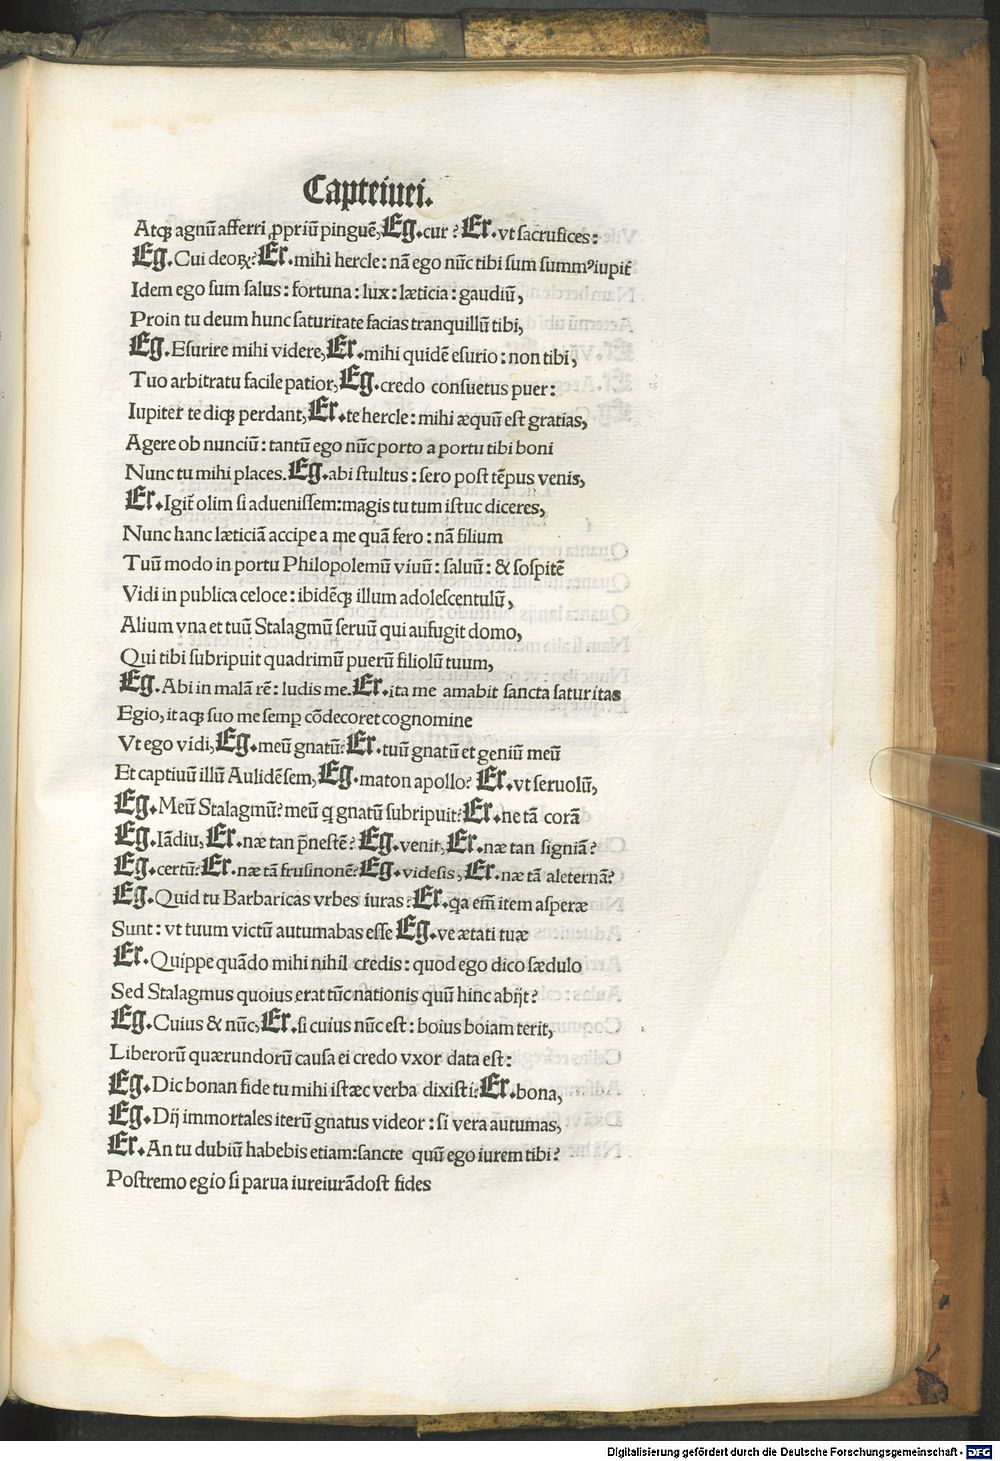 Capteiuei.
Atqꝫ agnũ afferri ꝓpriũ pinguẽ, Eg. cur? Er. vt sacrufices:
Eg. Cui deoꝝ? Er. mihi hercle: nã ego nũc tibi sum summꝰ iupit̃
Idem ego sum salus: fortuna: lux: læticia: gaudiũ,
Proin tu deum hunc saturitate facias tranquillũ tibi,
Eg. Esurire mihi videre, Er. mihi quidẽ esurio: non tibi,
Tuo arbitratu facile patior, Eg. credo consuetus puer:
Iupiter te diqꝫ perdant, Er. te hercle: mihi æquũ est gratias,
Agere ob nunciũ: tantũ ego nũc porto a portu tibi boni
Nunc tu mihi places. Eg. abi stultus: sero post tẽpus venis,
Er. Igit̃ olim si aduenissem: magis tu tum istuc diceres,
Nunc hanc læticiã accipe a me quã fero: nã filium
Tuũ modo in portu Philopolemũ viuũ: saluũ: & sospitẽ
Vidi in publica celoce: ibidẽqꝫ illum adolescentulũ,
Alium vna et tuũ Stalagmũ seruũ qui aufugit domo,
Qui tibi subripuit quadrimũ puerũ filiolũ tuum,
Eg. Abi in malã rẽ: ludis me. Er. ita me amabit sancta saturitas
Egio, itaqꝫ suo me semꝑ cõdecoret cognomine
Vt ego vidi, Eg. meũ gnatũ? Er. tuũ gnatũ et geniũ meũ
Et captiuũ illũ Aulidẽsem, Eg. maton apollo? Er. vt seruolũ,
Eg. Meũ Stalagmũ? meũ q̃ gnatũ subripuit? Er. ne tã corã
Eg. Iãdiu, Er. næ tan p̃nestẽ? Eg. venit, Er. næ tan signiã?
Eg. certũ? Er. næ tã frusinonẽ? Eg. videsis, Er. næ tã aleternã?
Eg. Quid tu Barbaricas vrbes iuras? Er. q̃a em̃ item asperæ
Sunt: vt tuum victũ autumabas esse Eg. ve ætati tuæ
Er. Quippe quãdo mihi nihil credis: quod ego dico sædulo
Sed Stalagmus quoius erat tũc nationis quũ hinc abijt?
Eg. Cuius & nũc, Er. si cuius nũc est: boius boiam terit,
Liberorũ quærundorũ causa ei credo vxor data est:
Eg. Dic bonan fide tu mihi istæc verba dixisti? Er. bona,
Eg. Dij immortales iterũ gnatus videor: si vera autumas,
Er. An tu dubiũ habebis etiam: sancte quũ ego iurem tibi?
Postremo egio si parua iureiurãdost fides
Digitalisierung gefördert durch die Deutsche Forschungsgemeinschaft - DFG